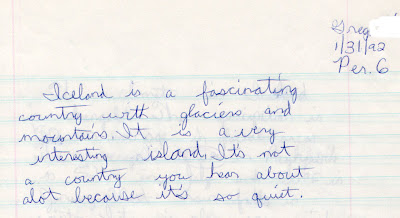 Greg
1/31/92
Per. 6
Iceland is a fascinating
country with glaciers and
mountains. It is a very
interesting island. It's not
a country you hear about
alot because it's so quiet.